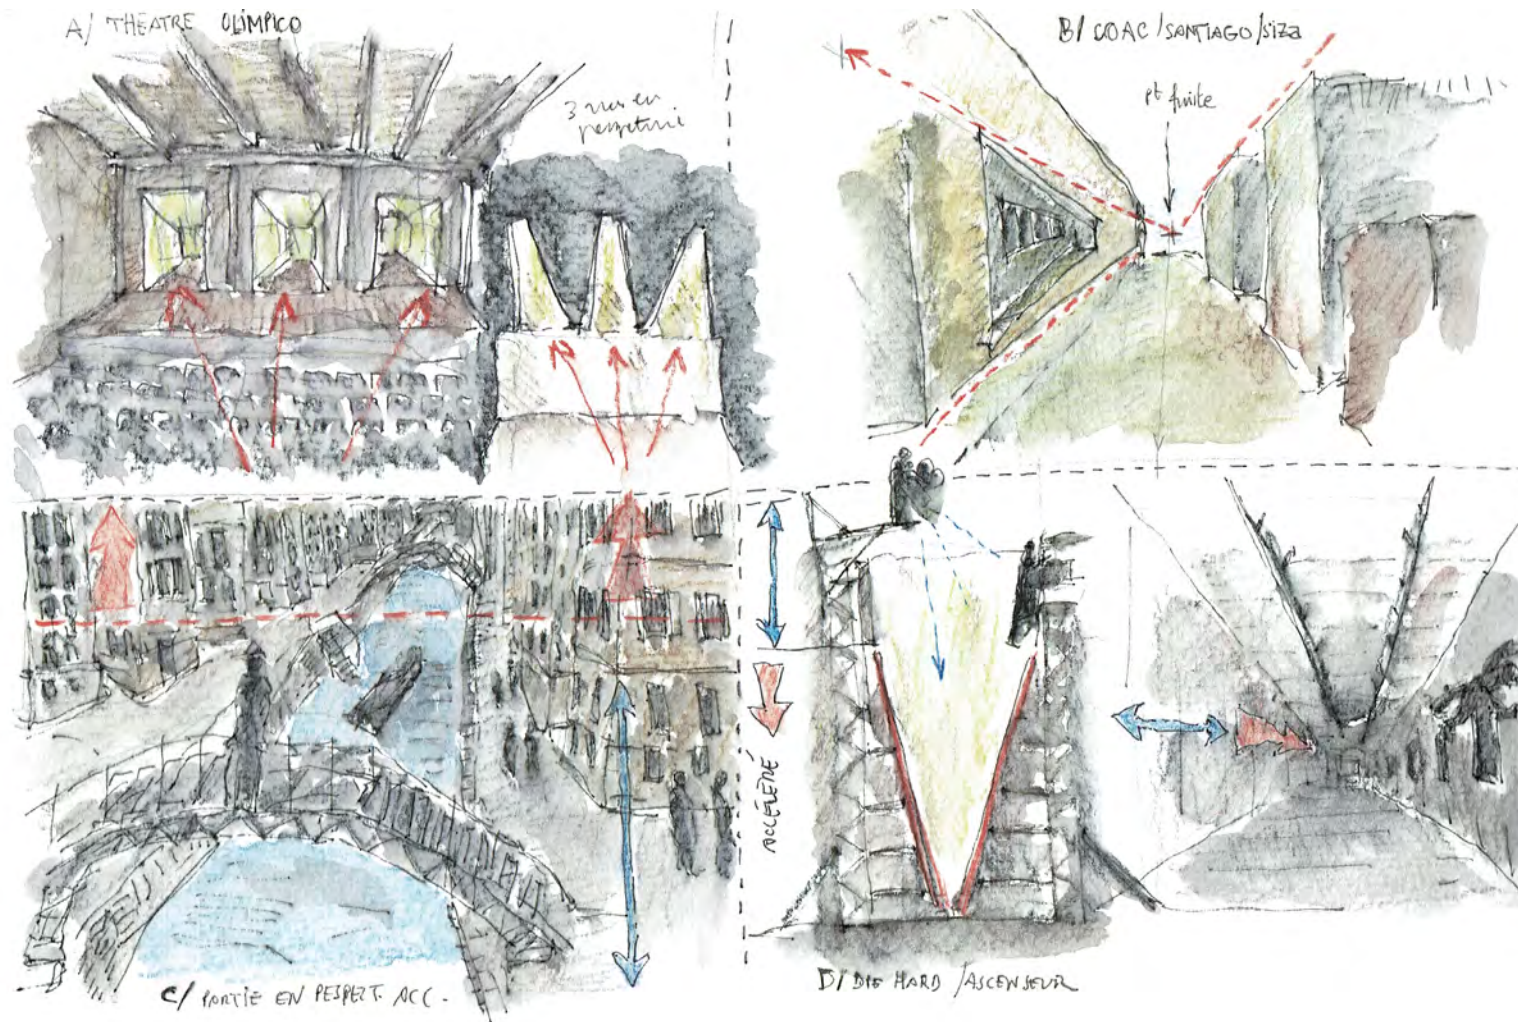 A/ THEATRE OLIMPICO
3 rues en
perspective
B/ COAC/SANTIAGO/SIZA
pt fuite
ACCÉLÉRÉ
C/ PARTIE EN PESPECT. ACC.
D/ DIE HARD /ASCENSEUR